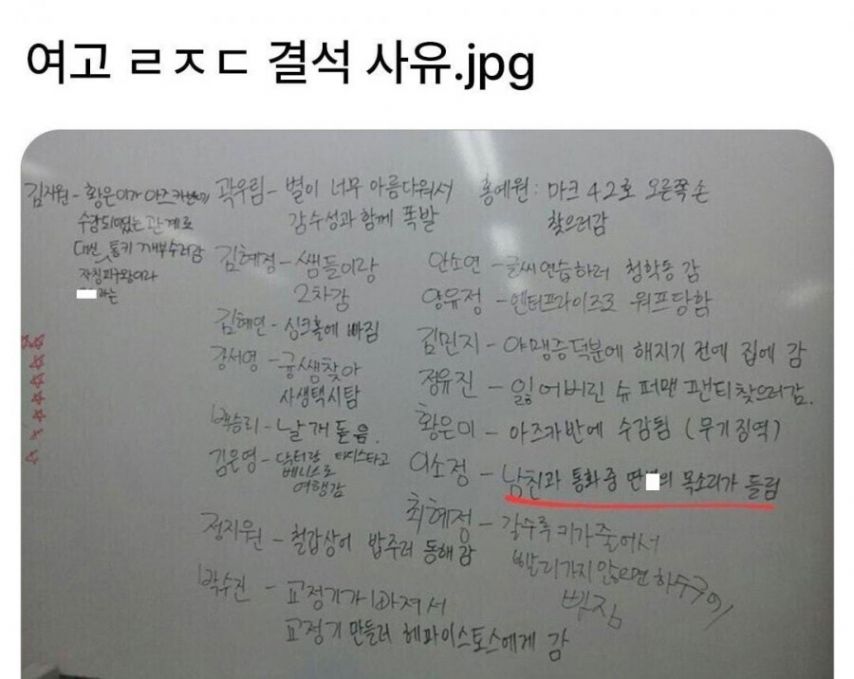 여고 ㄹㅈㄷ 결석 사유.jpg
김지원 - 황은미가 아즈카반에
수감되었는 관계로
대신 통키 깨부수러감
자칭피구왕이라
라는
곽우림 - 별이 너무 아름다워서
감수성과 함께 폭발
김혜정 - 쌤들이랑
2차감
김혜연 - 싱크홀에 빠짐
강서영 - 궁쌤찾아
사생택시탐
백승리 - 날개 돋음.
김은영 - 닥터랑 타디스타고
베니스로
여행감
정지원 - 철갑상어 밥주러 동해감
박수진 - 교정기가 빠져서
교정기 만들러 헤파이스토스에게 감
홍예원 : 마크 42호 오른쪽 손
찾으러감
안소연 - 글씨연습하러 청학동 감
양유정 - 엔터프라이즈로 워프당함
김민지 - 야맹증덕분에 해지기 전에 집에 감
정유진 - 잃어버린 슈퍼맨 팬티찾으러감.
황은미 - 아즈카반에 수감됨 (무기징역)
이소정 - 남친과 통화 중 딴 의 목소리가 들림
최혜정 - 갈수록 키가줄어서
빨리가지 않으면 하수구에
빠짐